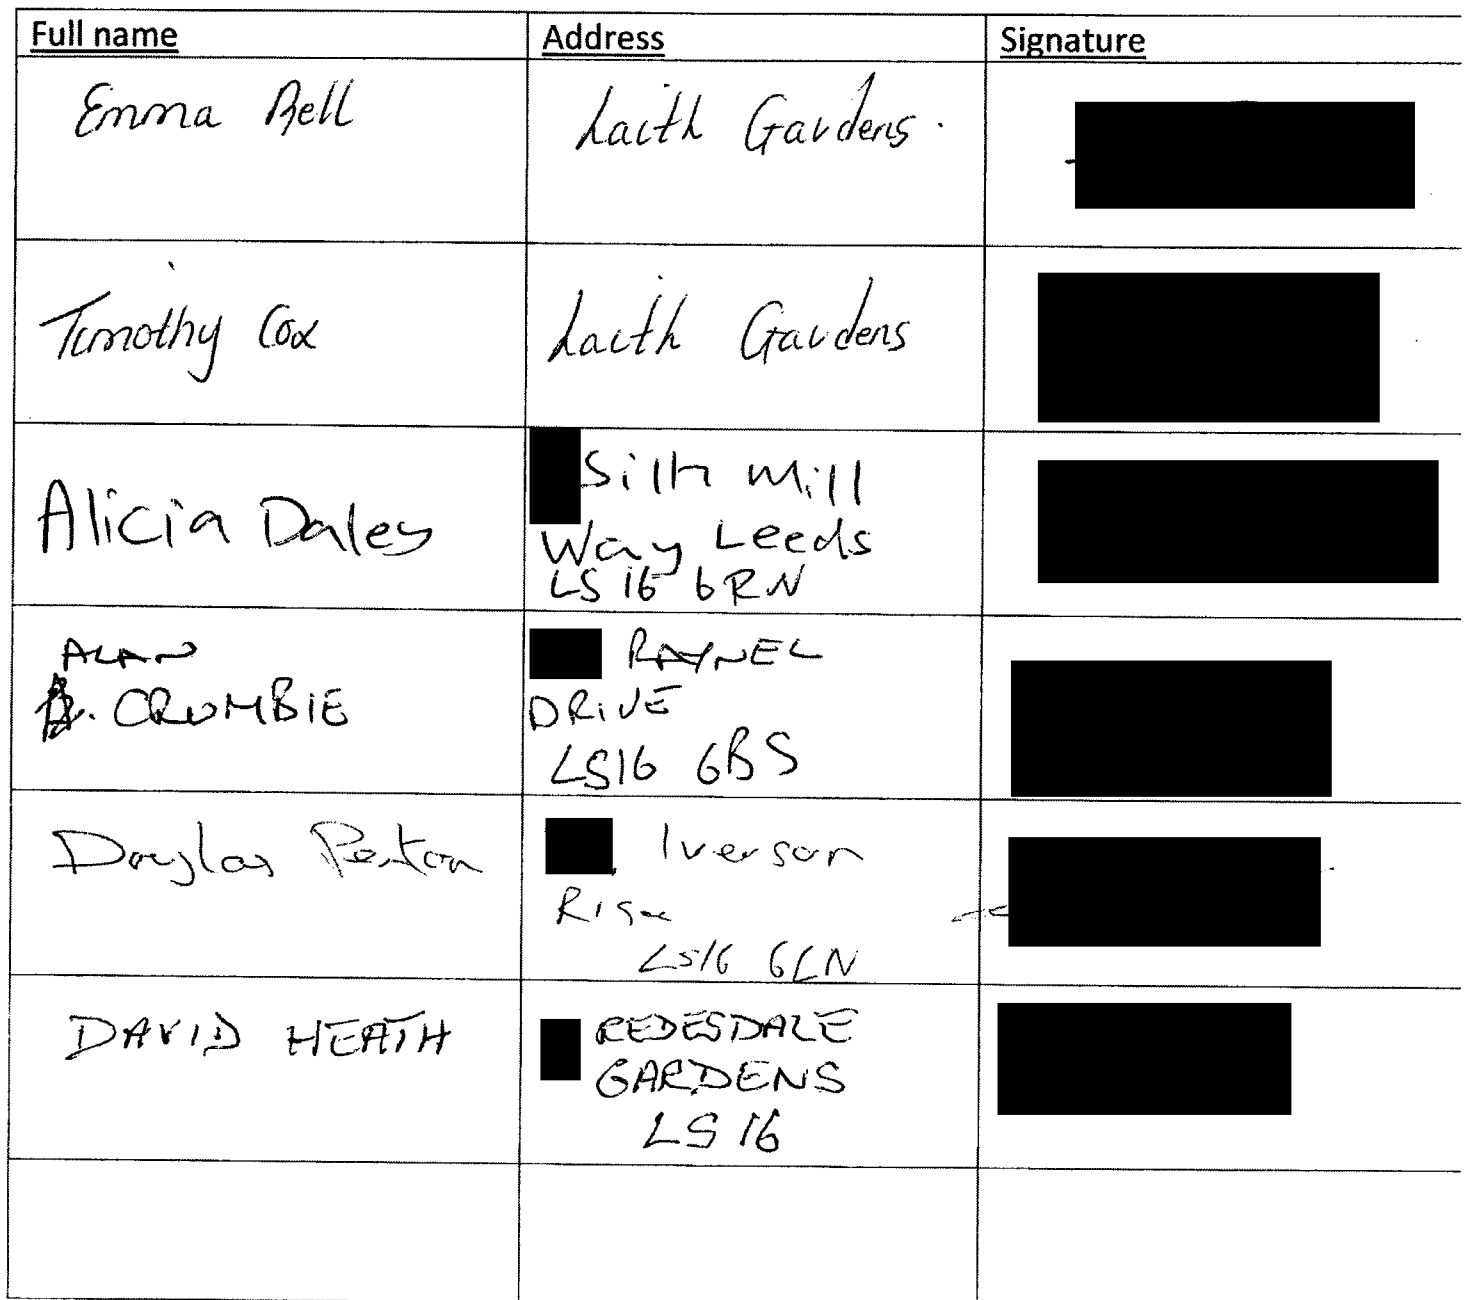 Full name Address Signature
Emma Bell Laith Gardens.
Timothy Cox Laith Gardens
Alicia Daley
Silk Mill
Way Leeds
LS16 6RN
ALAN
A. CRUMBIE
RAYNEL
DRIVE
LS16 6BS
Douglas
Iverson
Rise
LS16 6LN
DAVID HEATH
REDESDALE
GARDENS
LS16